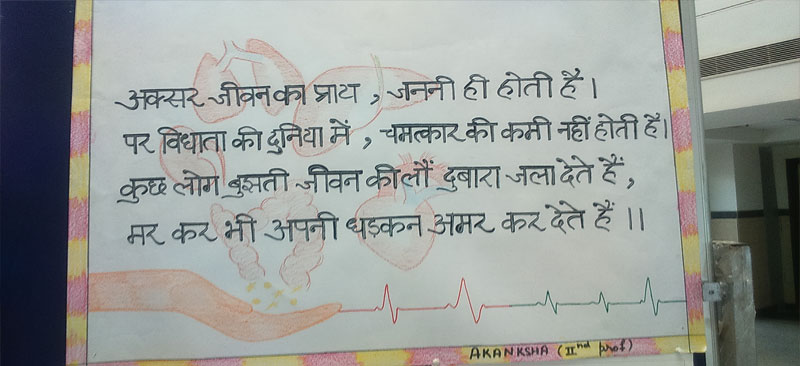 अक्सर जीवन का प्राय , जननी ही होती है ।
पर विधाता की दुनिया में , चमत्कार की कमी नहीं होती है ।
कुछ लोग बुझती जीवन की लौं दुबारा जला देते हैं ,
मर कर भी अपनी धड़कन अमर कर देते हैं ।।
AKANKSHA (IInd prof)